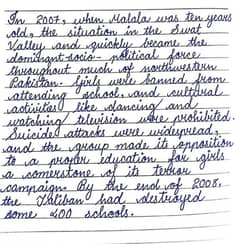 In 2007, when Malala was ten years
old, the situation in the Swat
Valley and quickly became the
dominant-socio-political force
throughout much of northwestern
Pakistan. Girls were banned from
attending school, and cultural
activities like dancing and
watching television were prohibited.
Suicide attacks were widespread,
and the group made its opposition
to a proper education for girls
a cornerstone of its terror
campaign. By the end of 2008,
the Taliban had destroyed
some 400 schools.